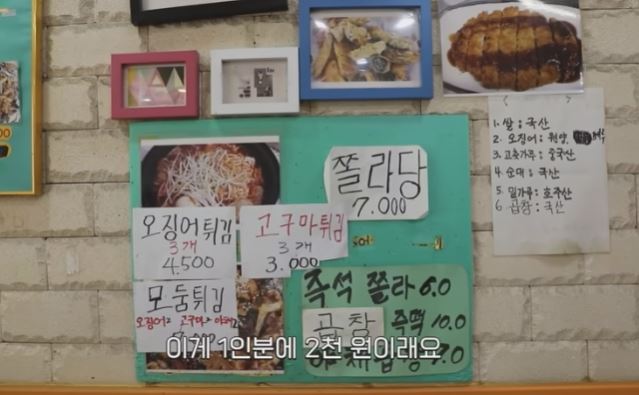 쫄라당
7.000
오징어튀김
3개
4.500
고구마튀김
3개
3.000
모둠튀김
오징어2 고구마2 야채2
즉석 쫄라 6.0
곱창 즉떡 10.0
1. 쌀 : 국산
2. 오징어 : 원양,
3. 고춧가루 : 중국산
4. 순대 : 국산
5. 밀가루 : 호주산
6. 곱창 : 국산
이게 1인분에 2천 원이래요